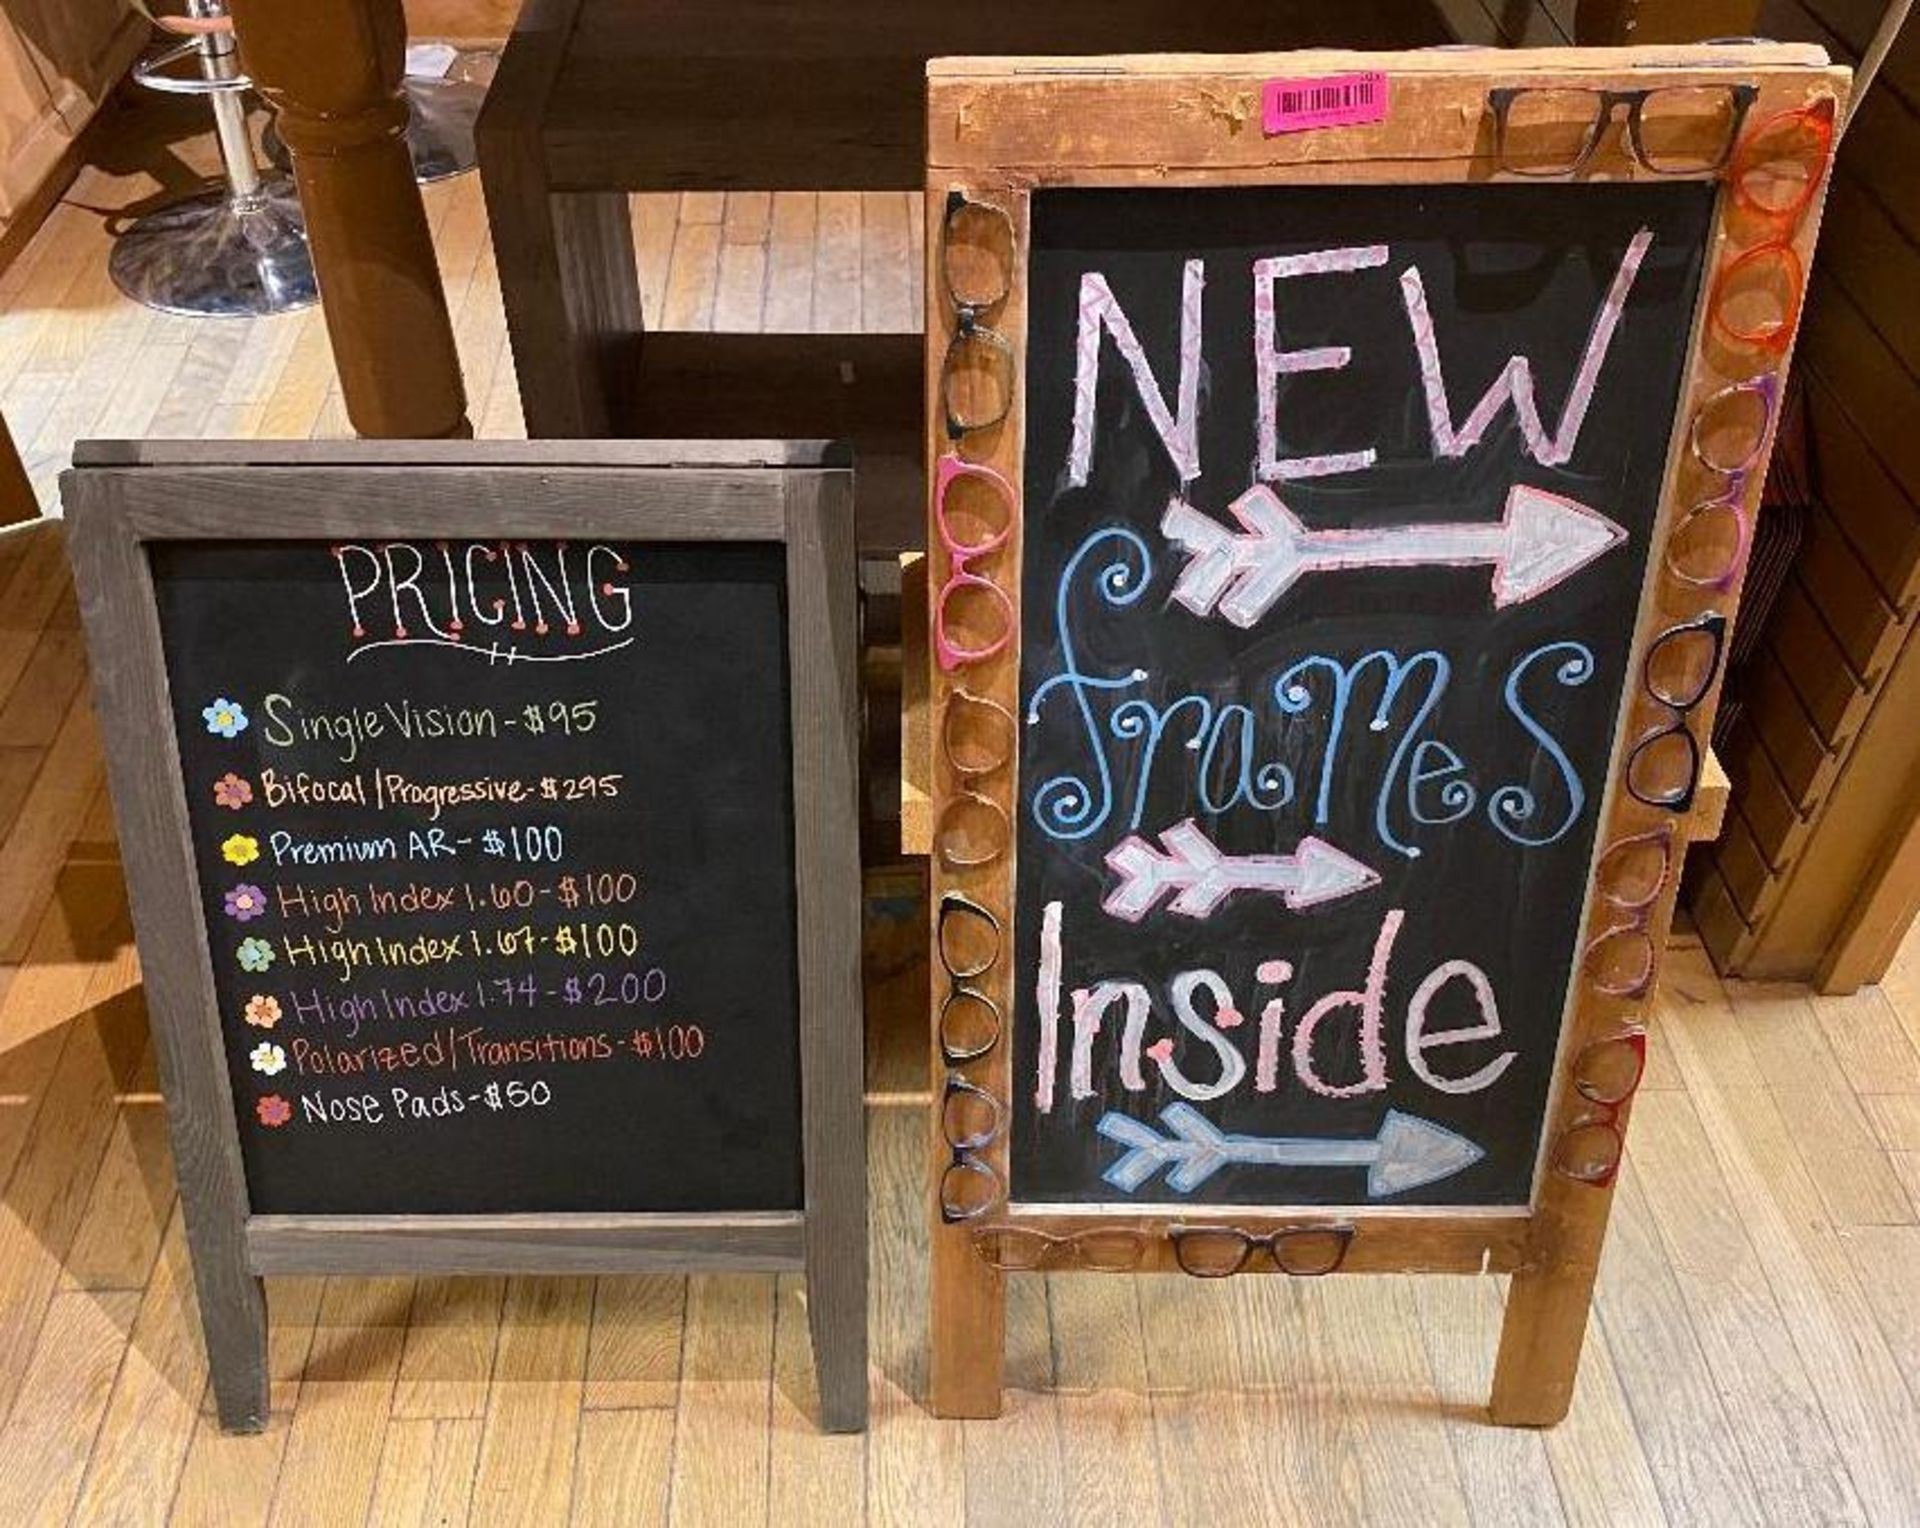 PRICING
Single Vision - $95
Bifocal / Progressive - $295
Premium AR - $100
High Index 1.60 - $100
High Index 1.67 - $100
High Index 1.74 - $200
Polarized / Transitions - $100
Nose Pads - $50
NEW
frames
Inside